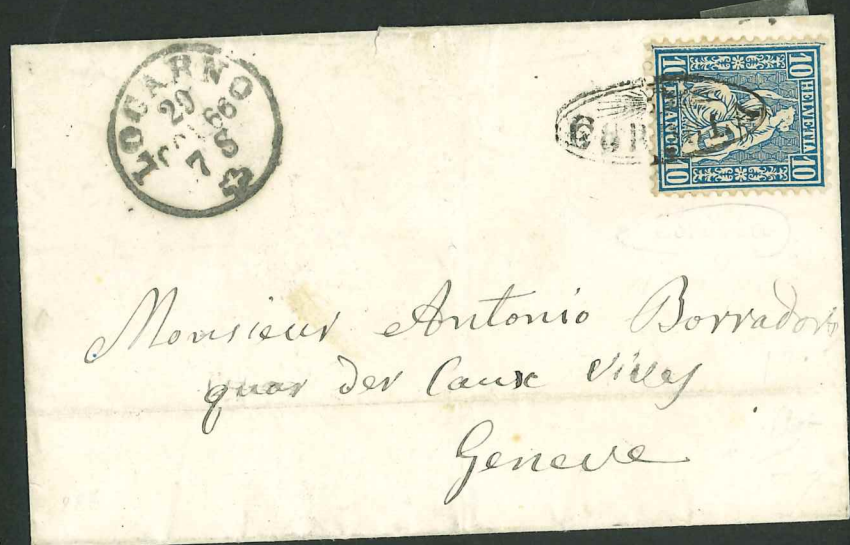 LOCARNO
29
66
7 S
10 HELVETIA 10
10 FRANCO 10
Monsieur Antonio Borradori
quai des Eaux Vives
Geneve